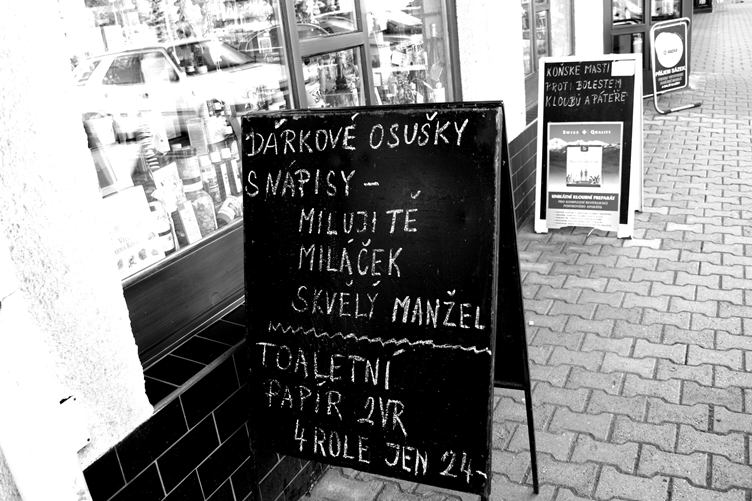 DÁRKOVÉ OSUŠKY
S NÁPISY –
MILUJI TĚ
MILÁČEK
SKVĚLÝ MANŽEL
TOALETNÍ
PAPÍR 2VR
4 ROLE JEN 24,-
KOŇSKÉ MASTI
PROTI BOLESTEM
KLOUBŮ A PÁTEŘE
SWISS + QUALITY
UNIKÁTNÍ KLOUBNÍ PREPARÁT